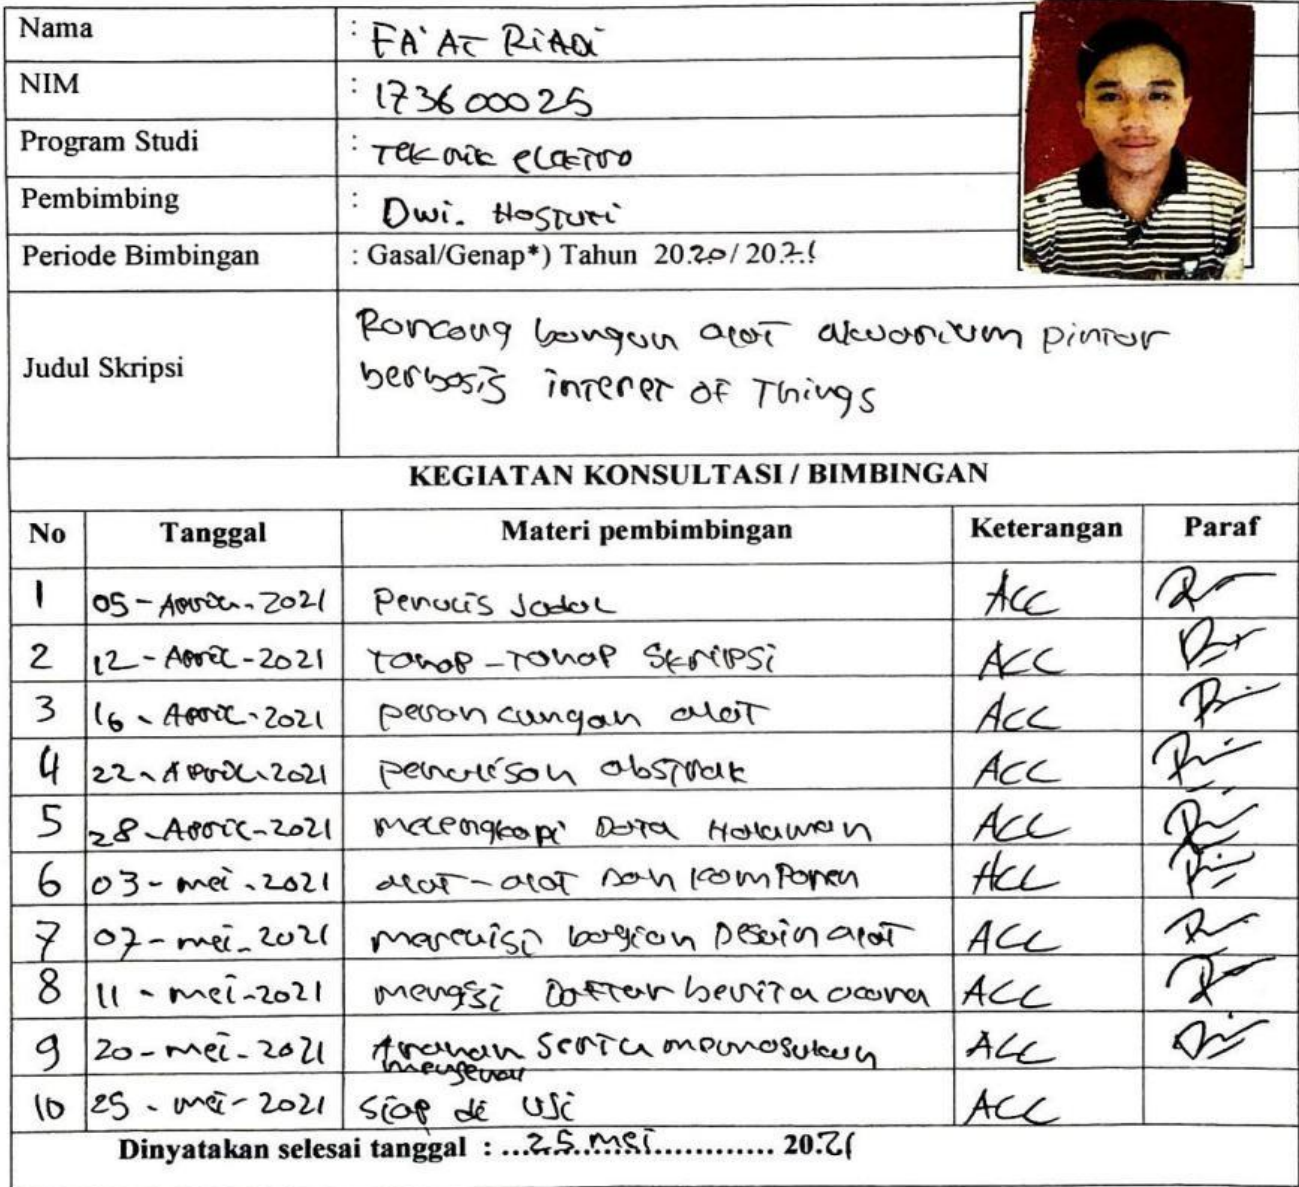 Nama : FA'AT RiADi
NIM : 173600025
Program Studi : Teknik elektro
Pembimbing : Dwi. Hastuti
Periode Bimbingan : Gasal/Genap*) Tahun 20.20/20.21
Judul Skripsi
Rancang bangun alat akuarium pintar
berbasis interet of Things
KEGIATAN KONSULTASI / BIMBINGAN
No Tanggal Materi pembimbingan Keterangan Paraf
1 05-April-2021 Penulis Judul ACC
2 12-April-2021 tahap-Tahap Skripsi ACC
3 16-April-2021 perancangan alat ACC
4 22-April-2021 penulisan abstrak ACC
5 28-April-2021 melengkapi Data Halaman ACC
6 03-mei-2021 alat-alat Dan komponen ACC
7 07-mei-2021 merevisi bagian Desain alat ACC
8 11-mei-2021 mengisi Daftar berita acara ACC
9 20-mei-2021 Arahan Serta memasukan ACC
10 25-mei-2021 siap di Uji ACC
Dinyatakan selesai tanggal : ...25 mei............. 20.21